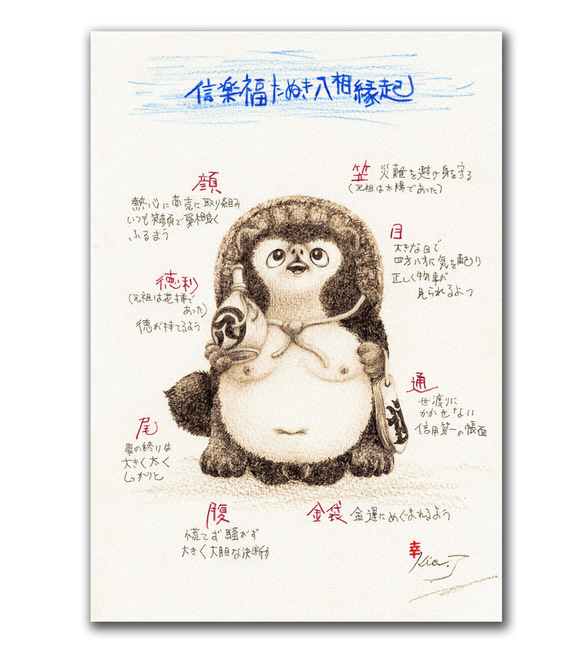 信楽福たぬき八相縁起
顔
熱心に商売に取り組み
いつも笑顔で愛相良く
ふるまう
笠 災難を避け身を守る
(元祖は太陽であった)
目
大きな目で
四方八方に気を配り
正しく物事が
見られるよう
徳利
(元祖は花棒で
あった)
徳が持てるよう
通
世渡りに
かかせない
信用第一の帳面
尾
事の終りは
大きく太く
しっかりと
腹
慌てず騒がず
大きく大胆な決断力
金袋 金運にめぐまれるよう
幸
Kia